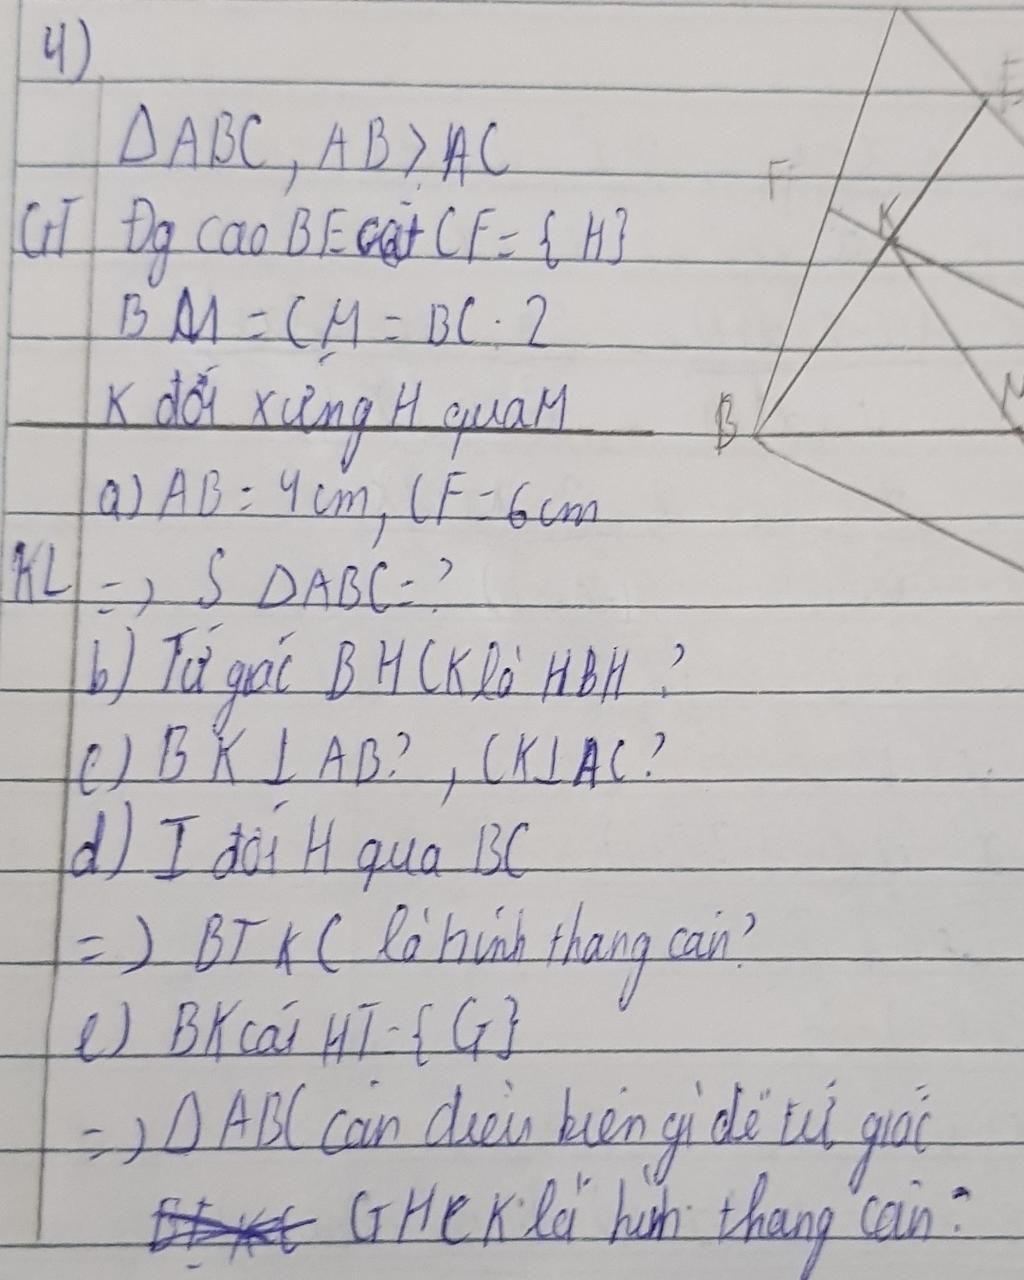 4)
ΔABC, AB > AC
GT Đg cao BE cắt CF = {H}
BM = CM = BC : 2
K đối xứng H qua M
a) AB = 4cm, CF = 6cm
KL => S ΔABC = ?
b) Tứ giác BHCK là HBH ?
c) BK ⊥ AB ? , CK ⊥ AC ?
d) I đối H qua BC
=> BIKC là hình thang cân?
e) BK cắt HI = {G}
=> ΔABC cần điều kiện gì để tứ giác
GHCK là hình thang cân?
E
F
K
M
B